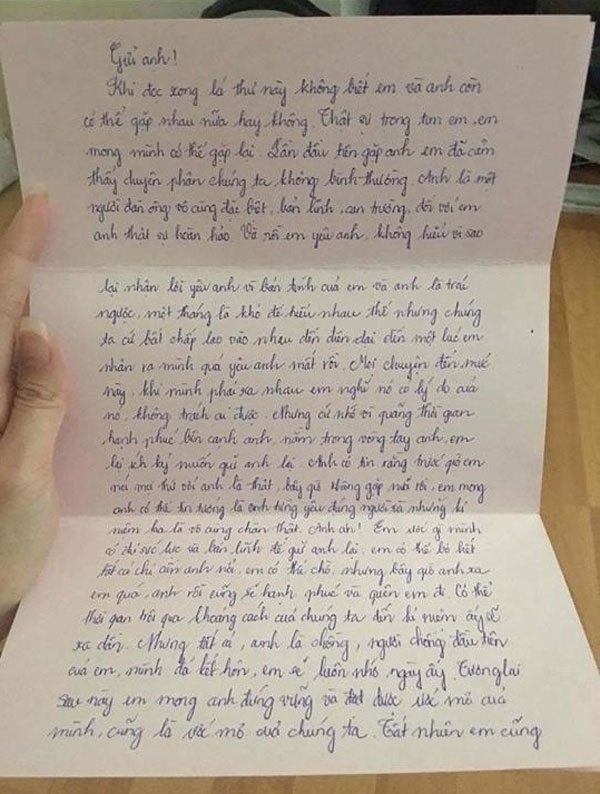 Gửi anh!
Khi đọc xong lá thư này không biết em và anh còn
có thể gặp nhau nữa hay không. Thật sự trong tim em, em
mong mình có thể gặp lại. Lần đầu tiên gặp anh em đã cảm
thấy duyên phận chúng ta không bình thường. Anh là một
người đàn ông vô cùng đặc biệt, bản lĩnh, can trường, đối với em
anh thật sự hoàn hảo. Và rồi em yêu anh, không hiểu vì sao
lại nhận lời yêu anh vì bản tính của em và anh là trái
ngược, một tháng là khó để hiểu nhau thế nhưng chúng
ta cứ bất chấp lao vào nhau đến điên dại đến một lúc em
nhận ra mình quá yêu anh mất rồi. Mọi chuyện đến mức
này, khi mình phải xa nhau em nghĩ nó có lý do của
nó, không trách ai được. Nhưng cứ nhớ về quãng thời gian
hạnh phúc bên cạnh anh, nằm trong vòng tay anh, em
lại ích kỷ muốn giữ anh lại. Anh có tin rằng trước giờ em
nói mọi thứ với anh là thật, bây giờ không gặp nữa rồi, em mong
anh có thể tin tưởng là anh từng yêu đúng người và những kỉ
niệm kia là vô cùng chân thật. Anh ah! Em ước gì mình
có đủ sức lực và bản lĩnh để giữ anh lại, em có thể bỏ hết
tất cả chỉ cần anh nói, em có thể chờ, nhưng bây giờ anh xa
em quá, anh rồi cũng sẽ hạnh phúc và quên em đi. Có thể
thời gian trôi qua khoảng cách của chúng ta đến kỉ niệm ấy sẽ
xa dần. Nhưng tất cả, anh là chồng, người chồng đầu tiên
của em, mình đã kết hôn, em sẽ luôn nhớ ngày ấy. Tương lai
sau này em mong anh đứng vững và đạt được ước mơ của
mình, cũng là ước mơ của chúng ta. Tất nhiên em cũng